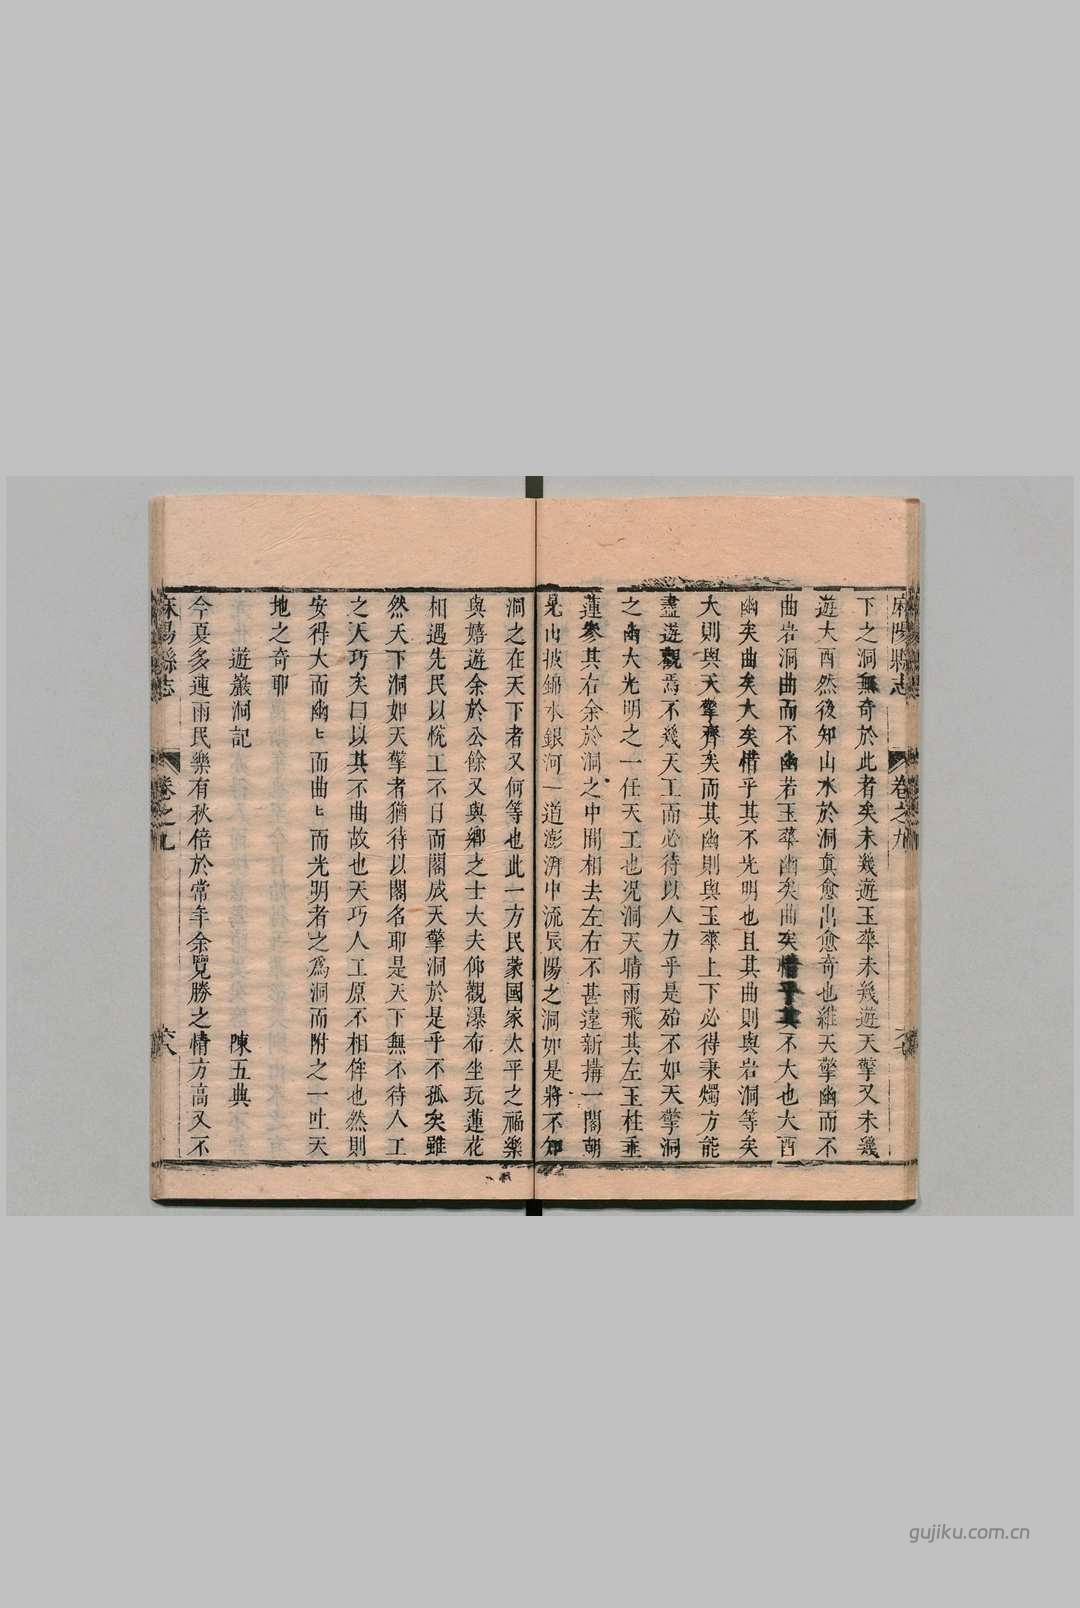 麻陽縣志
卷之九
下之洞無奇於此者矣未幾遊玉華未幾遊天擎又未幾
遊大酉然後知山水於洞眞愈出愈奇也雖天擎幽而不
曲岩洞曲而不幽若玉華幽矣曲矣惜乎其不大也大酉
幽矣曲矣大矣惜乎其不光明也且其曲則與岩洞等矣
大則與天擎齊矣而其幽則與玉華上下必得秉燭方能
盡遊觀焉不幾天工而必待以人力乎是殆不如天擎洞
之幽大光明之一任天工也况洞天晴雨飛其左玉柱垂
蓮參其右余於洞之中間相去左右不甚遠新搆一閣朝
見山披錦水銀河一道澎湃中流辰陽之洞如是將不知
洞之在天下者又何等也此一方民蒙國家太平之福樂
與嬉遊余於公餘又與鄉之士大夫仰觀瀑布坐玩蓮花
相遇先民以恱工不日而閣成天擎洞於是乎不孤矣雖
然天下洞如天擎者猶待以閣名耶是天下無不待人工
之天巧矣曰以其不曲故也天巧人工原不相侔也然則
安得大而幽〻而曲〻而光明者之爲洞而附之一吐天
地之奇耶
遊巖洞記 陳五典
今夏多連雨民樂有秋倍於常年余覽勝之情方高又不
麻陽縣志
卷之九
六八
gujiku.com.cn